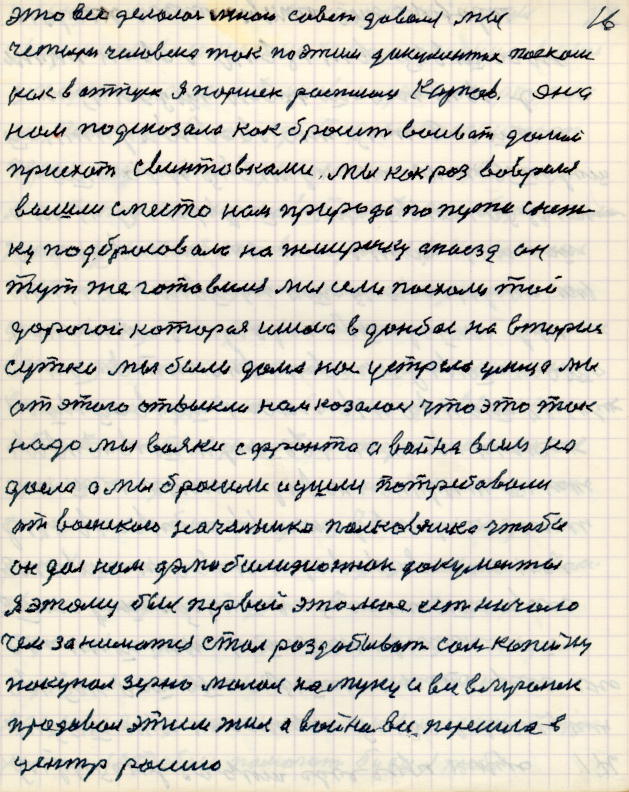 это всё делолос мною совет довали мы 16
четыри человека ток поэтим документах поехали
как в отпуск я поршек росписал Карпов. она
нам подсказала как бросит воиват домой
приехат свинтовками. мы как роз вовремя
вышли сместо нам природа по пути снеж
ку подбросовала на жмиринку апоезд он
тут же готовился мы сели поехали той
дорогой которая ишла в донбас на вторыи
сутки мы были дома нас устрела улица мы
от этого отвыкли нам козалос что это так
надо мы вояки сфронта а война всим на
доела а мы бросили и ушли потребовали
от воинского начальника полковника чтобы
он дал нам дэмобилизионнаи документы
я этому был первой это мне нет ничало
чем заниматся стал роздобыват сам копейку
покупал зерно молол на муку и вез в
продовал этим жил а война все перешла в
центр росию